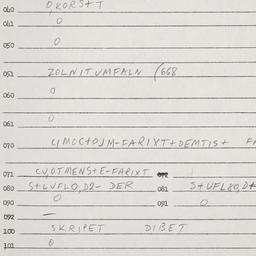 040 0,KORS+T
041 0
050 0
051 ZOLNITUMFALN (668
060 0
061 0
070 4MOC+OJM-FARIXT+DEMTIS+ FA
071 CV,OTMENS+E-FARIXT
080 S+LVFLO,D2- DER 081 S+UFL80,D+
090 0 091 0
092 —
100 SKRIPET DIBET
101 0